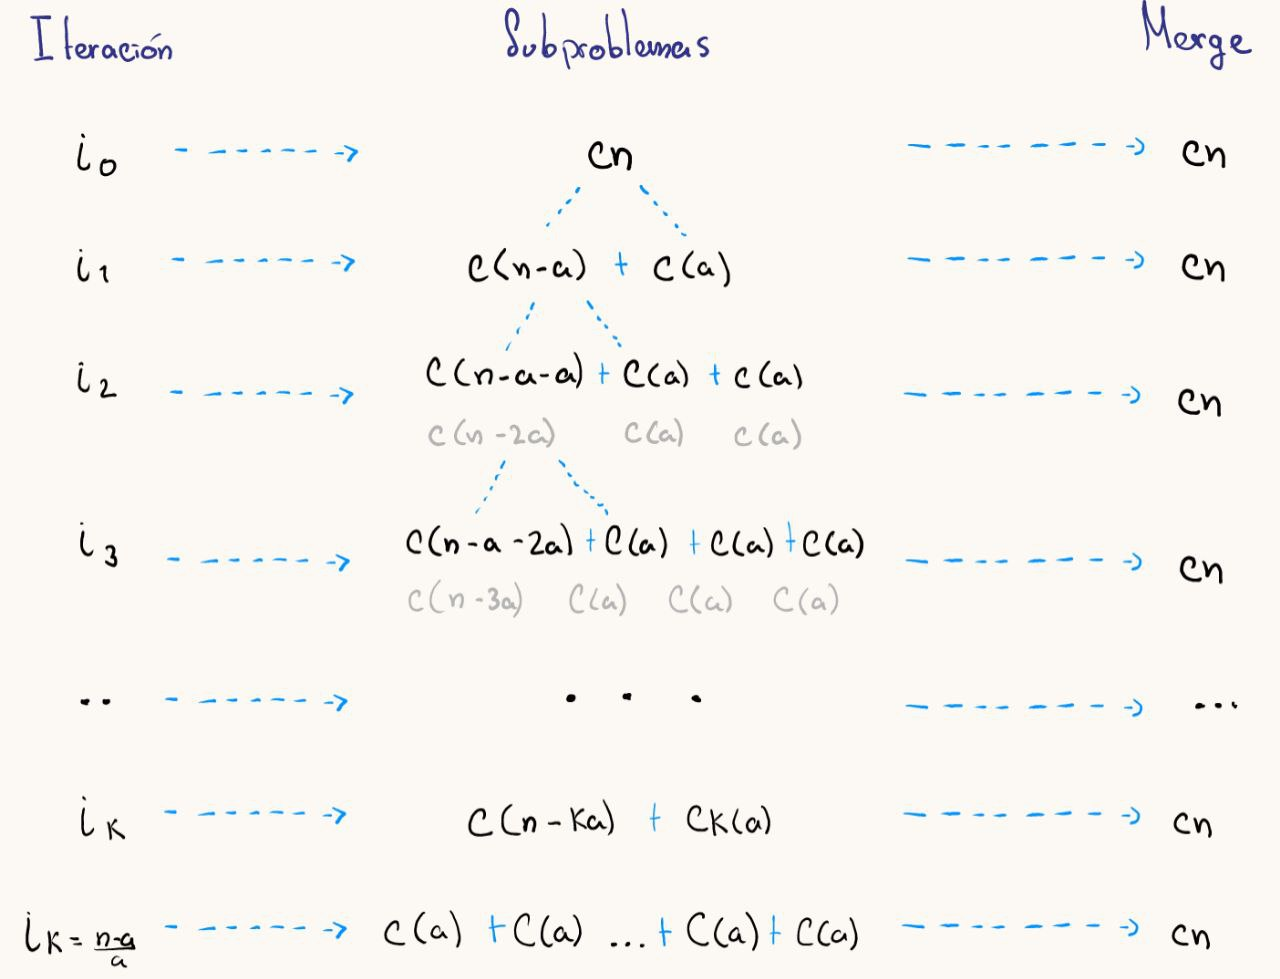 Iteración Subproblemas Merge
i₀ cn cn
i₁ C(n-a) + C(a) cn
i₂ C(n-a-a) + C(a) + C(a) cn
C(n-2a) C(a) C(a)
i₃ C(n-a-2a) + C(a) + C(a) + C(a) cn
C(n-3a) C(a) C(a) C(a)
.. . . . ...
iₖ C(n-ka) + Ck(a) cn
i K = n-a/a C(a) + C(a) ... + C(a) + C(a) cn